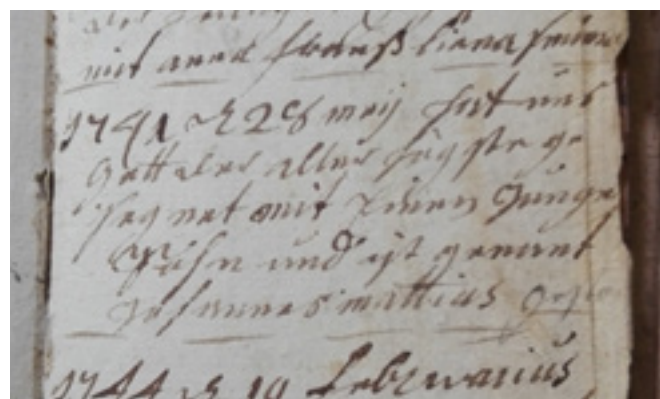 mit anna
1741 d 28 meij hat uns
Gott der aller högste ge
segnet mit einen Junge
Sohn und ist genant
Johannes mattias
1744 d 19 Febrwarius